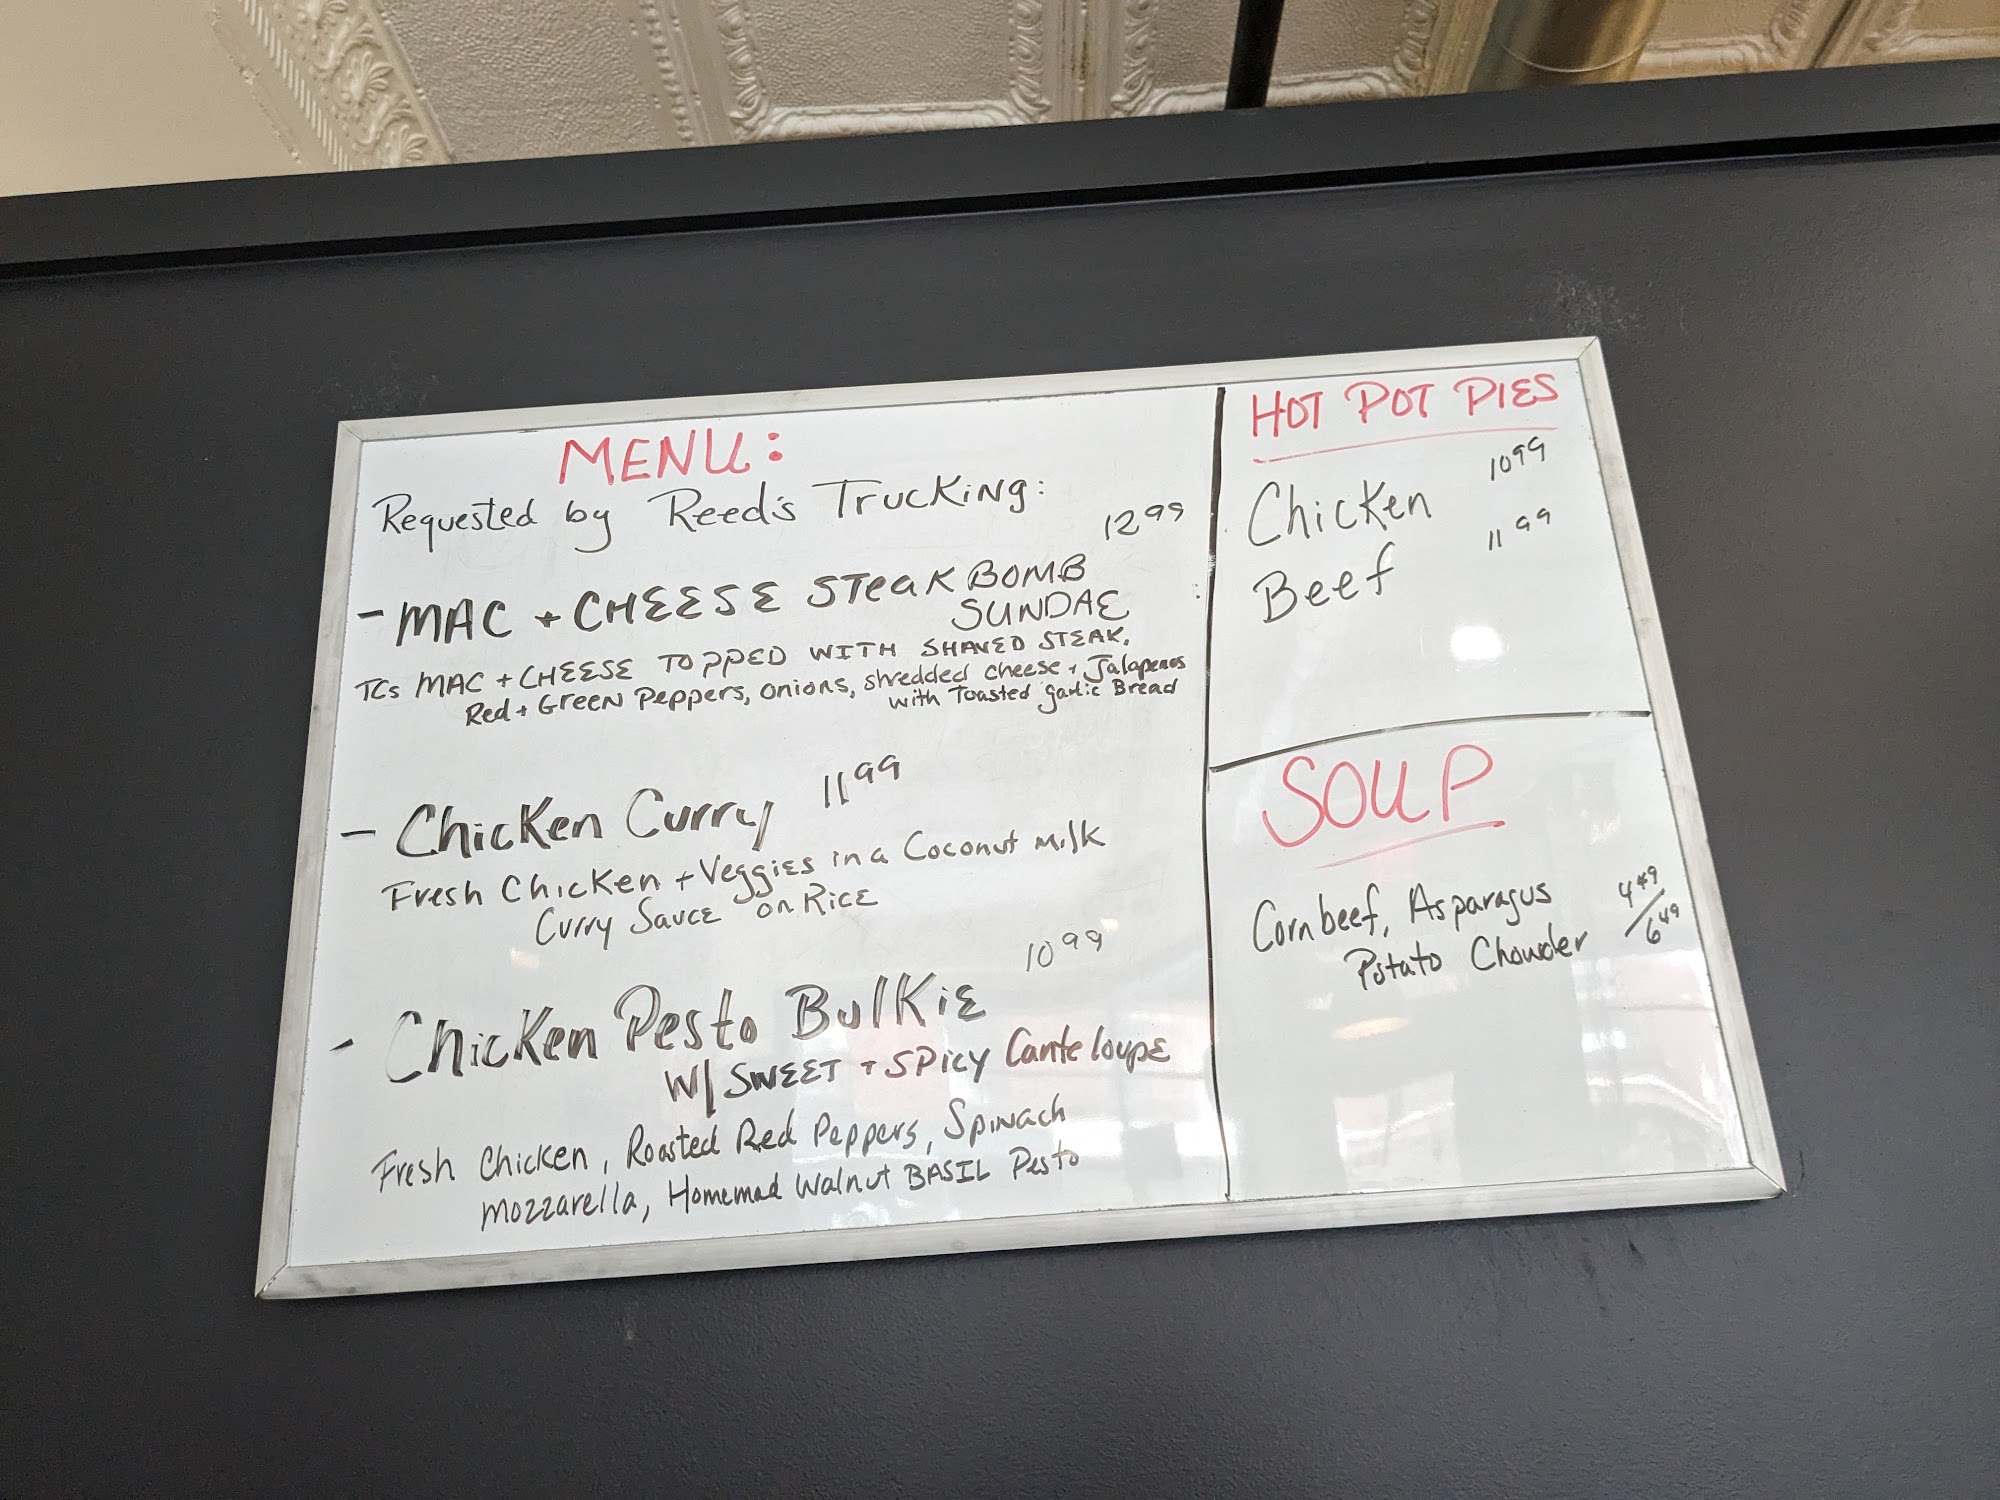 MENU:
Requested by Reed's Trucking:
12 99
- MAC + CHEESE STEAK BOMB
SUNDAE
TCs MAC + CHEESE TOPPED WITH SHAVED STEAK,
Red + Green Peppers, onions, shredded cheese + Jalapenos
with Toasted garlic Bread
- Chicken Curry 11 99
Fresh Chicken + Veggies in a Coconut milk
Curry Sauce on Rice
10 99
- Chicken Pesto Bulkie
W/ SWEET + SPICY Canteloupe
Fresh Chicken, Roasted Red Peppers, Spinach
mozzarella, Homemad Walnut BASIL Pesto
HOT POT PIES
Chicken 10 99
Beef 11 99
SOUP
Cornbeef, Asparagus 4 49/
Potato Chowder 6 49